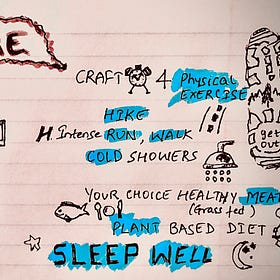 CRAFT 4 Physical
EXERCISE
HIKE
H. Intense RUN, WALK
COLD SHOWERS
get
out
YOUR CHOICE HEALTHY MEAT
(Grass fed)
PLANT BASED DIET
SLEEP WELL